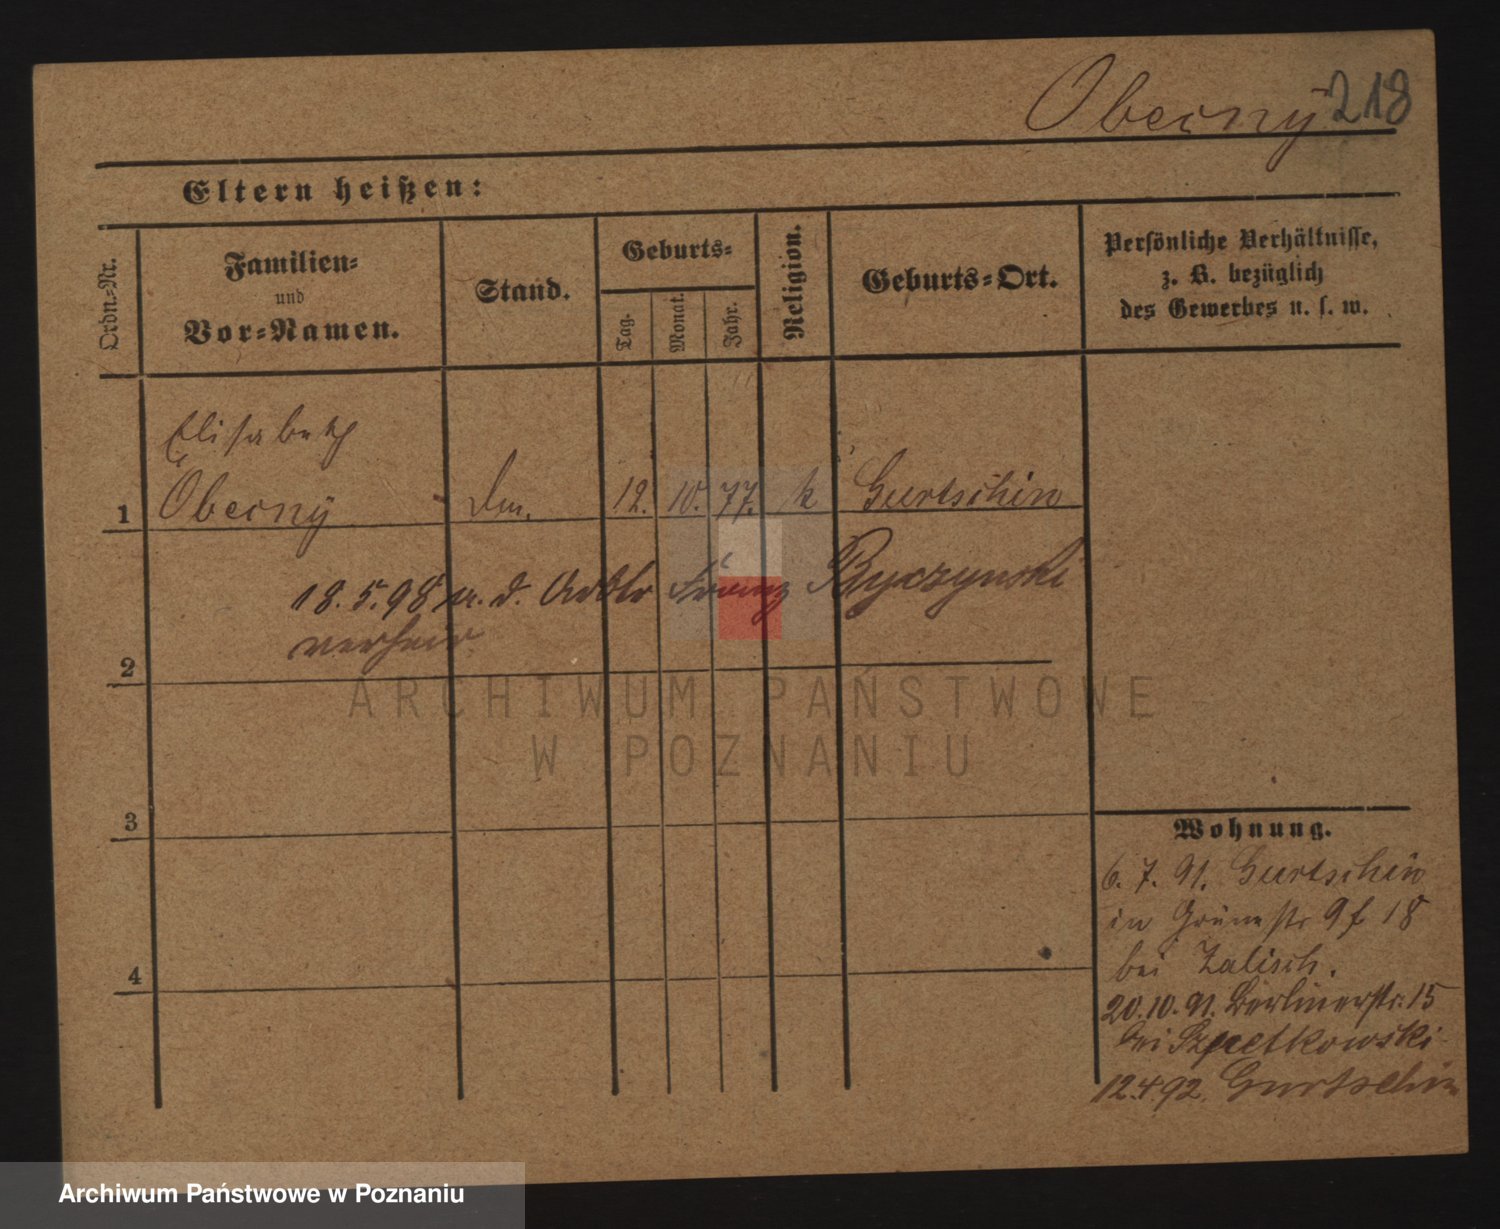 Oberny 218
Eltern heißen:
Ordn.-Nr.
Familien-
und
Vor-Namen.
Stand.
Geburts-
Tag.
Monat.
Jahr.
Religion.
Geburts-Ort.
Persönliche Verhältnisse,
z. B. bezüglich
des Gewerbes u. s. w.
Elisabeth
1 Oberny 12. 10. 77. k Gurtschin
18.5.98 m. d. Franz
verheir.
2
ARCHIWUM PAŃSTWOWE
W POZNANIU
3
4
Wohnung.
6. 7. 91. Gurtschin
in 18
bei Zalisch.
20.10.91. Berlinerstr. 15
bei
12.4.92. Gurtschin
Archiwum Państwowe w Poznaniu